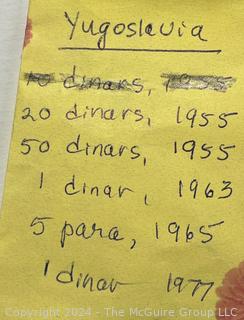 Yugoslavia
10 dinars, 1955
20 dinars, 1955
50 dinars, 1955
1 dinar, 1963
5 para, 1965
1 dinar 1977
Copyright 2024 - The McGuire Group LLC